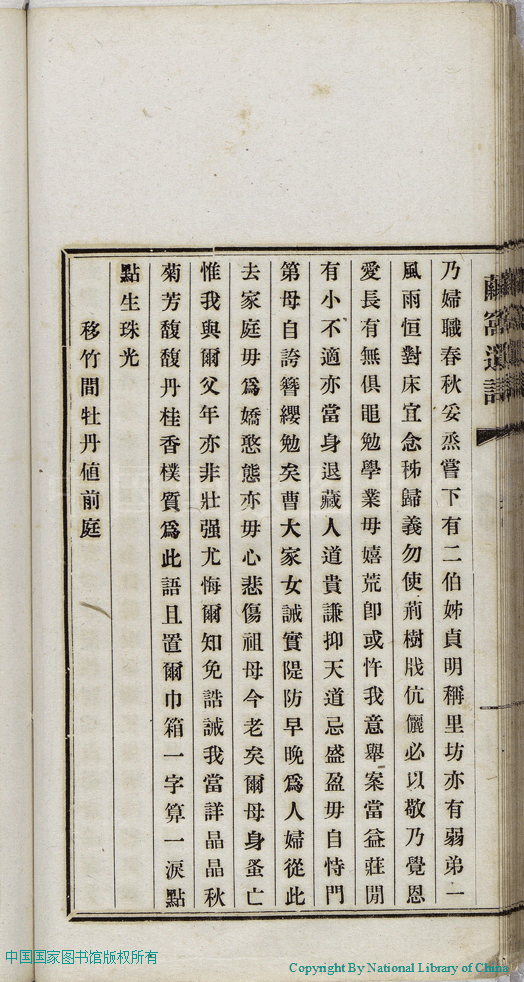 乃婦職春秋妥烝嘗下有二伯姊貞明稱里坊亦有弱弟一
風雨恒對床宜念秭歸義勿使荊樹戕伉儷必以敬乃覺恩
愛長有無俱黽勉學業毋嬉荒卽或忤我意舉案當益莊閒
有小不適亦當身退藏人道貴謙抑天道忌盛盈毋自恃門
第毋自誇簪纓勉矣曹大家女誡實隄防早晚爲人婦從此
去家庭毋爲嬌憨態亦毋心悲傷祖母今老矣爾母身蚤亡
惟我與爾父年亦非壯强尤悔爾知免誥誡我當詳晶晶秋
菊芳馥馥丹桂香樸質爲此語且置爾巾箱一字算一淚點
點生珠光
移竹間牡丹値前庭
中国国家图书馆版权所有
Copyright By National Library of China